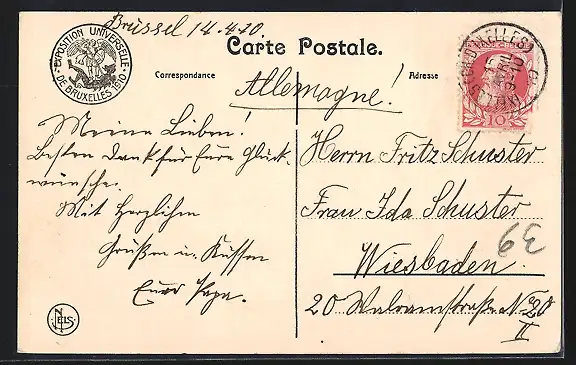 Brüssel 14.4.10
EXPOSITION UNIVERSELLE
DE BRUXELLES 1910
Carte Postale.
Correspondance
Adresse
Allemagne!
Meine Lieben!
Besten Dank für Eure Glück-
wünsche.
Mit herzlichen
Grüßen u. Küssen
Euer Papa.
NELS
10
Herrn Fritz Schuster
Frau Ida Schuster
Wiesbaden.
20 Walramstraße No 20
II